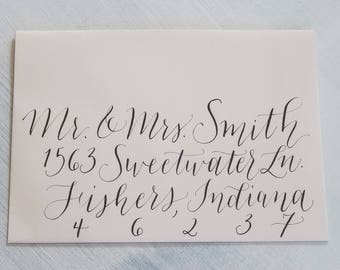 Mr. & Mrs. Smith
1563 Sweetwater Ln.
Fishers, Indiana
4 6 2 3 7